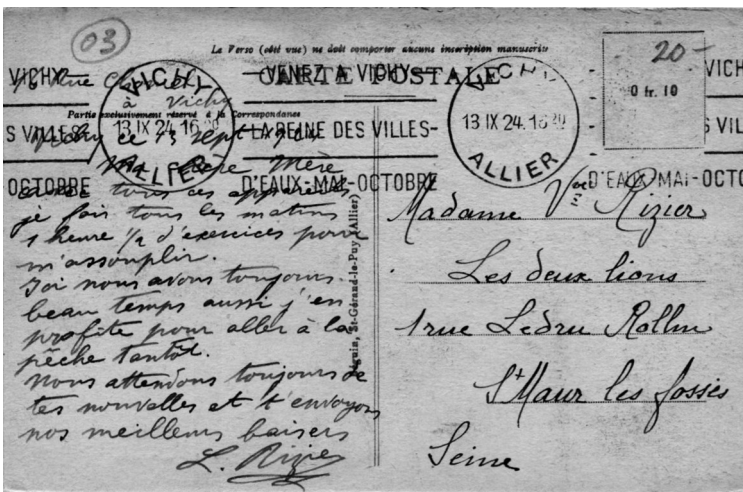 03
Le Verso (côté vue) ne doit comporter aucune inscription manuscrite
CARTE POSTALE
VICHY
VENEZ A VICHY
VICH
S VILLES
LA REINE DES VILLES-
S VILL
OCTOBRE
D'EAUX-MAI-OCTOBRE
D'EAUX-MAI-OCTO
VICHY
13 IX 24. 16
ALLIER
VICHY
13 IX 24. 16 20
ALLIER
20-
0 fr. 10
Partie exclusivement réservée à la Correspondance
à Vichy
ce 13 sept
Chère Mère
avec tous ces appareils
je fais tous les matins
1 heure 1/2 d'exercices pour
m'assouplir.
Ici nous avons toujours
beau temps aussi j'en
profite pour aller à la
pêche tantôt.
Nous attendons toujours de
tes nouvelles et t'envoyons
nos meilleurs baisers
L. Rizier
St-Gérand-le-Puy (Allier)
Madame Vve Rizier
Les deux lions
1 rue Ledru Rollin
St Maur les fossés
Seine